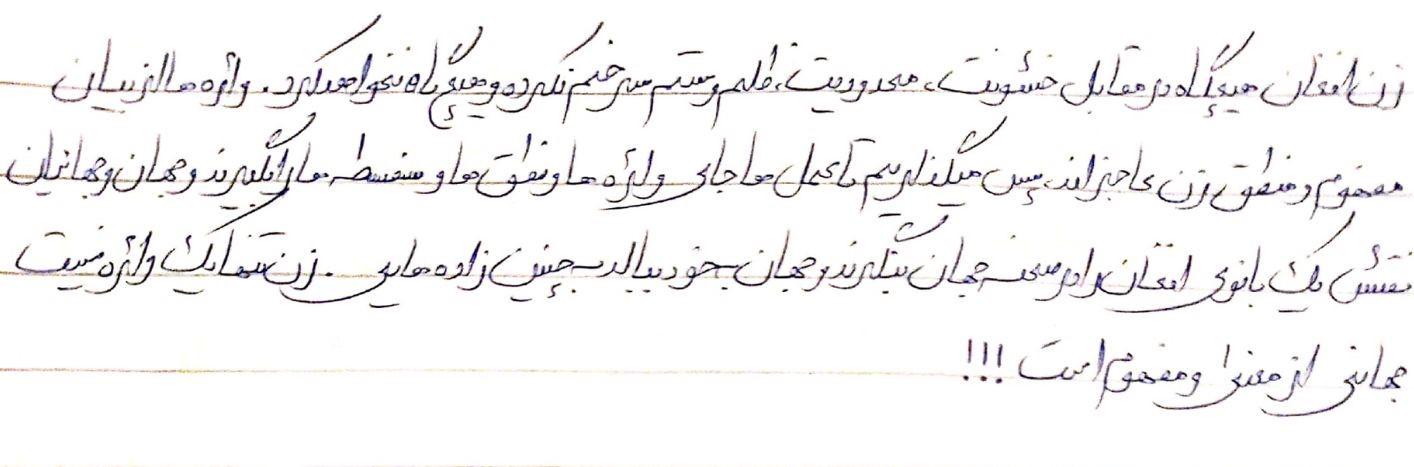 زن افغان هیچگاه در مقابل خشونت، محدودیت، ظلم و ستم سر خم نکرده و هیچ گاه نخواهد کرد. واژه ها از بیان
مفهوم و منطق زن عاجز اند، پس میگذاریم تا عمل ها جای واژه ها و نطق ها و سفسطه ها را بگیرند و جهان و جهانیان
نقش یک بانوی افغان را در صحنه جهان بنگرند و جهان بخود ببالد به چنین زاده هایی. زن تنها یک واژه نیست
جهانی از معنی و مفهوم است !!!